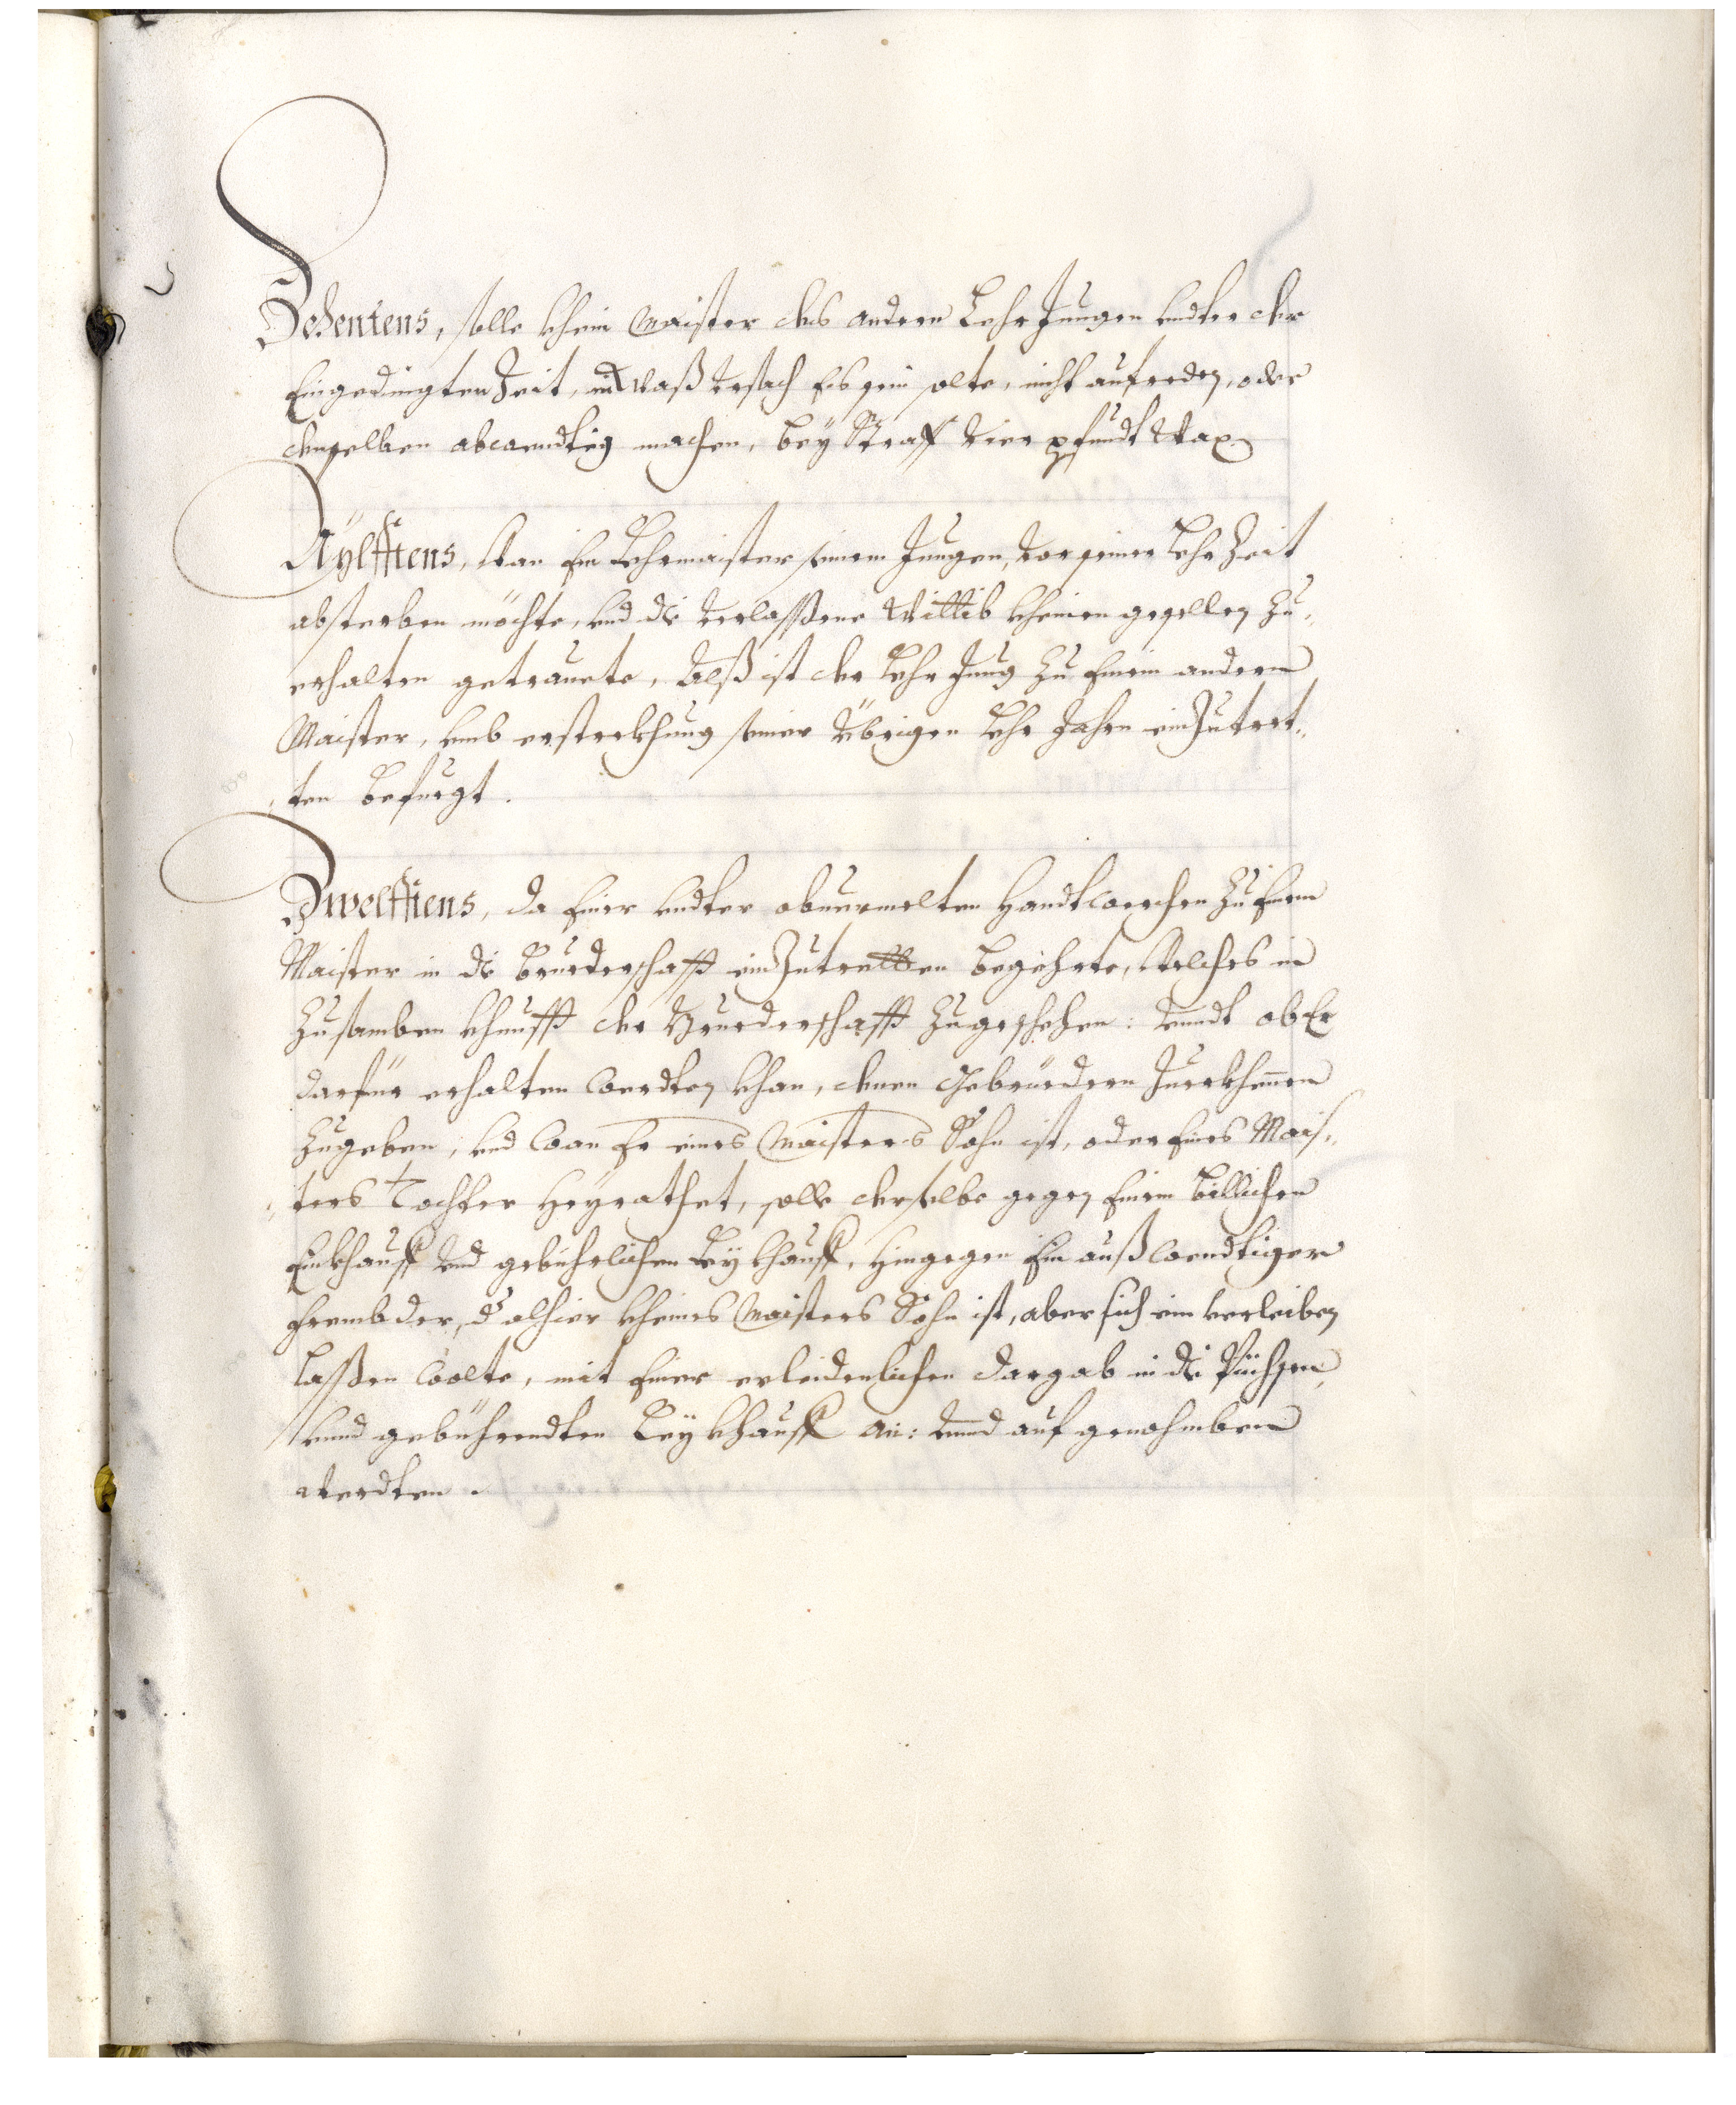 Zehentens, solle khein Maister des andern LehrJungen undter der
Eingedingten Zeit, in Waß Ursach Es sein solte, nicht aufreden, oder
denselben abwendtig machen, bey Straff Vier pfundt Wax.
Aÿlfftens, Wan Ein Lehrmaister seinem Jungen, vor seiner Lehr Zeit
absterben möchte, und die verlassßene Wittib kheinen gesellen zu¬
erhalten getrauete, Alß ist der Lehr Jung zu Einem andern
Maister, umb erstreckhung seiner Übrigen Lehr Jahrn einZutret¬
ten befuegt.
Zwelfftens, da Einer undter obuermelten Handtwerchen zu Einem
Maister in die Bruederschafft einZutretten begehrte, Welches in
Zusamben khunfft der Bruederschafft Zugeschehen: Vnndt ob Er
darfür erhalten werdten khan, denen Gebrüedern Zuerkhennen
Zugeben, und wan Er eines Maisters Sohn ist, oder Eines Mais¬
ters Tochter Heyrathet, solle derselbe gegen Einem billichen
Einkhauff und gebührlichen Leykhauff, Hingegen Ein außwendtiger
frembder, der alhier kheines Maisters Sohn ist, aber sich ein verleiben
lassßen wolte, mit Einer erleidenlichen dargab in die Püchsen,
unnd gebührendten Leykhauff an: Vnnd auf genohmben
Werdten.